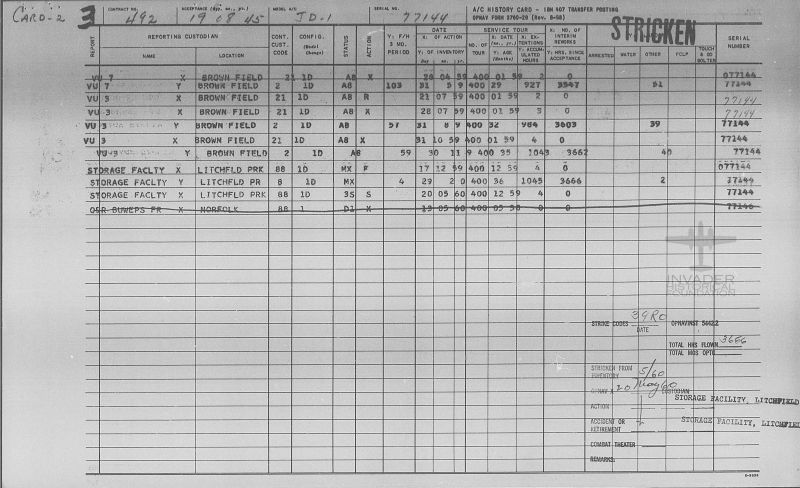 CARD-2
3
CONTRACT NO. 492
ACCEPTANCE (DAY, MO., YR.) 19 08 45
MODEL A/C JD-1
SERIAL NO. 77144
A/C HISTORY CARD - IBM 407 TRANSFER POSTING
OPNAV FORM 3760-20 (Rev. 8-58)
STRICKEN
REPORT
REPORTING CUSTODIAN
NAME
LOCATION
CONT. CUST. CODE
CONFIG.
STATUS
ACTION
Y: F/H 3 MO. PERIOD
DATE
X: OF ACTION
Y: OF INVENTORY
SERVICE TOUR
NO. OF TOUR
X: DATE (mo., yr.)
Y: AGE (Months)
X: EXTENTIONS
Y: ACCUMULATED HOURS
X: NO. OF INTERIM REWORKS
Y: HRS. SINCE ACCEPTANCE
ARRESTED
WATER
OTHER
FCLP
TOUCH & GO BOLTER
SERIAL NUMBER
VU 7 X BROWN FIELD 21 1D A8 X 28 04 59 400 01 59 2 0 077144
VU 7 Y BROWN FIELD 2 1D A8 103 31 5 9 400 29 927 3547 51 77144
VU 3 X BROWN FIELD 21 1D A8 R 21 07 59 400 01 59 2 0 77144
VU 3 X BROWN FIELD 21 1D A8 X 28 07 59 400 01 59 3 0 77144
VU 3 Y BROWN FIELD 2 1D A8 57 31 8 9 400 32 984 3603 39 77144
VU 3 X BROWN FIELD 21 1D A8 X 31 10 59 400 01 59 4 0 77144
VU 3 Y BROWN FIELD 2 1D A8 59 30 11 9 400 35 1043 3662 40 77144
STORAGE FACLTY X LITCHFLD PRK 88 1D MX F 17 12 59 400 12 59 4 0 077144
STORAGE FACLTY Y LITCHFLD PR 8 1D MX 4 29 2 0 400 36 1045 3666 2 77144
STORAGE FACLTY X LITCHFLD PRK 88 1D 3S S 20 05 60 400 12 59 4 0 77144
OSR BUWEPS FR X NORFOLK 88 1 D1 X 19 05 60 400 0 0
INVADER
HISTORICAL
FOUNDATION
STRIKE CODES 39RO OPNAVINST 5442.2
DATE
TOTAL HRS FLOWN 3666
TOTAL MOS OPTG
STRICKEN FROM INVENTORY 5/60
OPNAV X 20 May 60 CUSTODIAN
ACTION STORAGE FACILITY, LITCHFIELD
ACCIDENT OR RETIREMENT STORAGE FACILITY, LITCHFIEL
COMBAT THEATER
REMARKS: